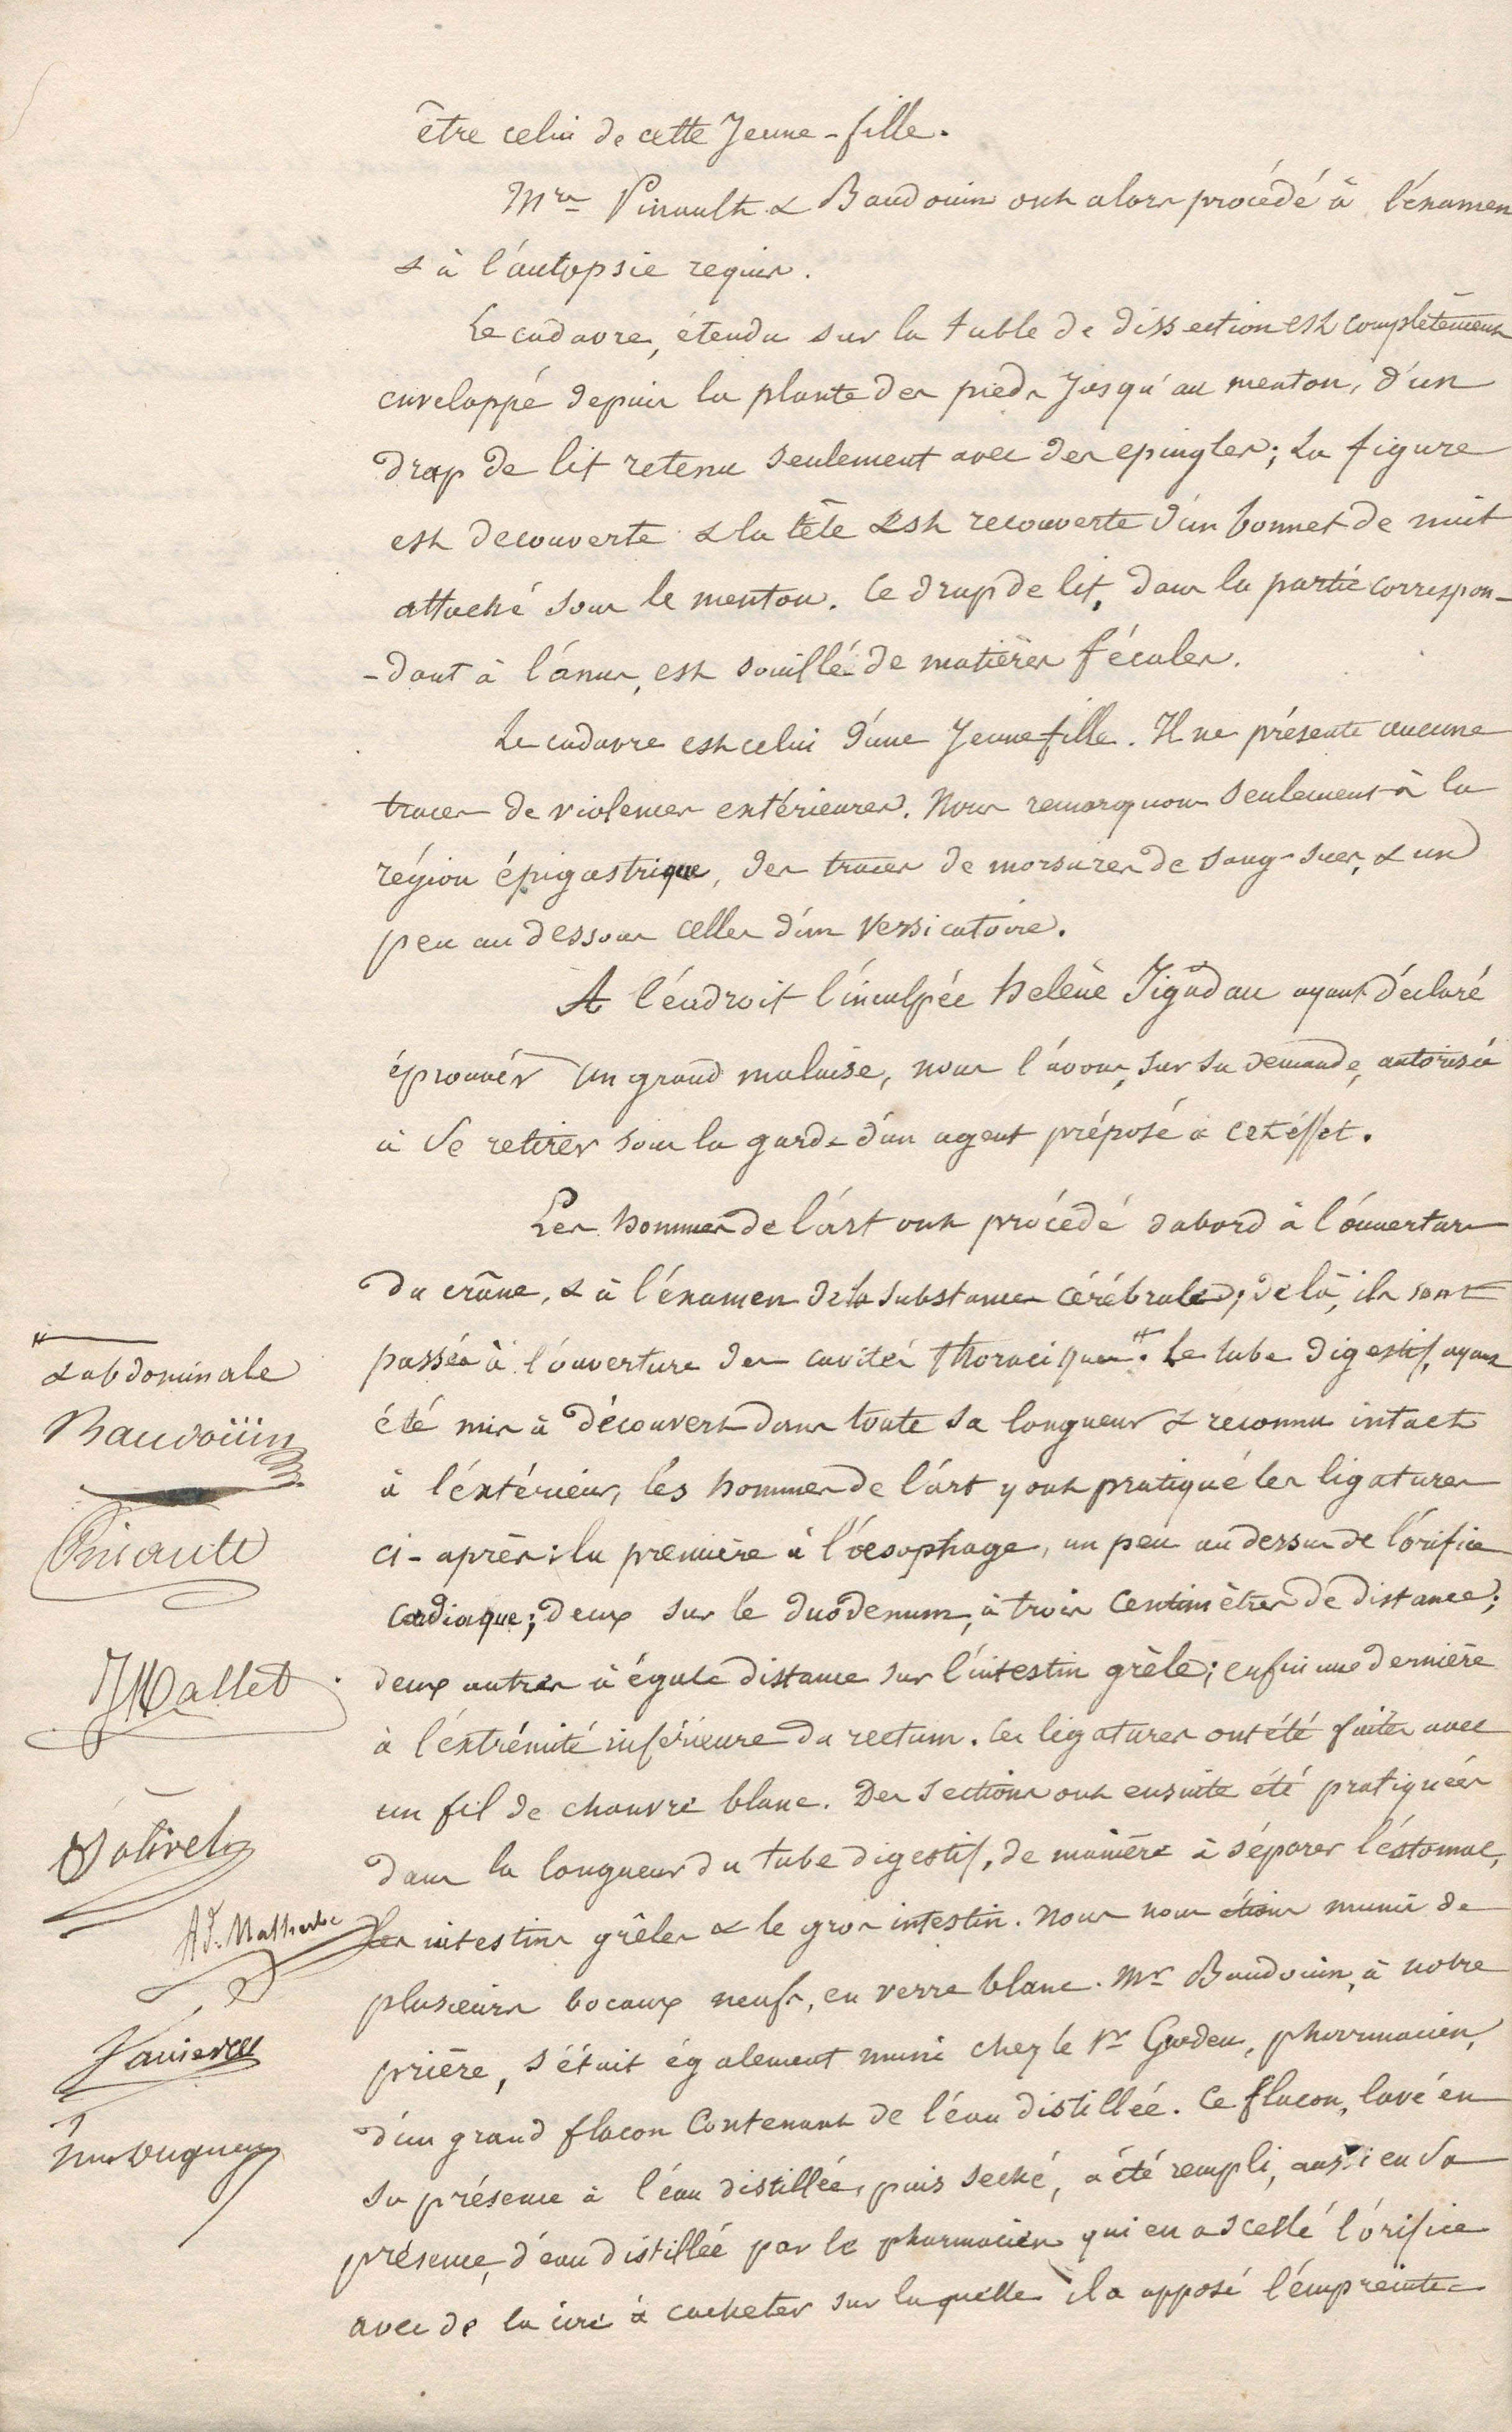 être celui de cette Jeune-fille.
Mrs Pinault & Baudouin ont alors procédé à l'éxamen
& à l'autopsie requis.
Le cadavre, étendu sur la table de dissection est complètement
enveloppé depuis la plante des pieds Jusqu'au menton, d'un
drap de lit retenu seulement avec des epingles; La figure
est decouverte & la tête est recouverte d'un bonnet de nuit
attaché sous le menton. Ce drap de lit, dans la partie correspon-
-dant à l'ánus, est souillé de matières fécales.
Le cadavre est celui d'une Jeune fille. Il ne présente aucune
traces de violences extérieures. Nous remarquons seulement à la
région épigastrique, des traces de morsures de sang-sues, & un
peu au dessous celles d'un vessicatoire.
A l'endroit l'inculpée helène Jégado ayant déclaré
éprouver un grand malaise, nous l'avons, sur sa demande, autorisée
à se retirer sous la garde d'un agent préposé à cet éffet.
Les hommes de l'art ont procédé dabord à l'ouverture
du crâne, & à l'éxamen de la substance cérébrale; de là, ils sont
passés à l'ouverture des cavités thoraciques #. Le tube digestif, ayant
été mis à découvert dans toute sa longueur & reconnu intact
à l'éxtérieur, les hommes de l'art y ont pratiqué les ligatures
ci-après: la première à l'oesophage, un peu au dessus de l'orifice
cardiaque; deux sur le duodenum, à trois centimètres de distance;
deux autres à égale distance sur l'intestin grèle; enfin une dernière
à l'éxtrémité inférieure du rectum. Ces ligatures ont été faites avec
un fil de chanvre blanc. Des sections ont ensuite été pratiquées
dans la longueur du tube digestif, de manière à séparer l'éstomac,
les intestins grêles & le gros intestin. Nous nous étions munis de
plusieurs bocaux neufs, en verre blanc. Mr Baudouin, à notre
prière, s'était également muni chez le Sr Gradeu, pharmacien,
d'un grand flacon contenant de l'éau distillée. Ce flacon, lavé en
sa présence à l'éau distillée, puis seché, a été rempli, aussi en sa
présence, d'eau distillée par le pharmacien qui en a scellé l'orifice
avec de la cire à cacheter sur laquelle il a apposé l'émpreinte
# & abdominale
Baudoüin
Pinault
Mallet
Ad. Malherbe